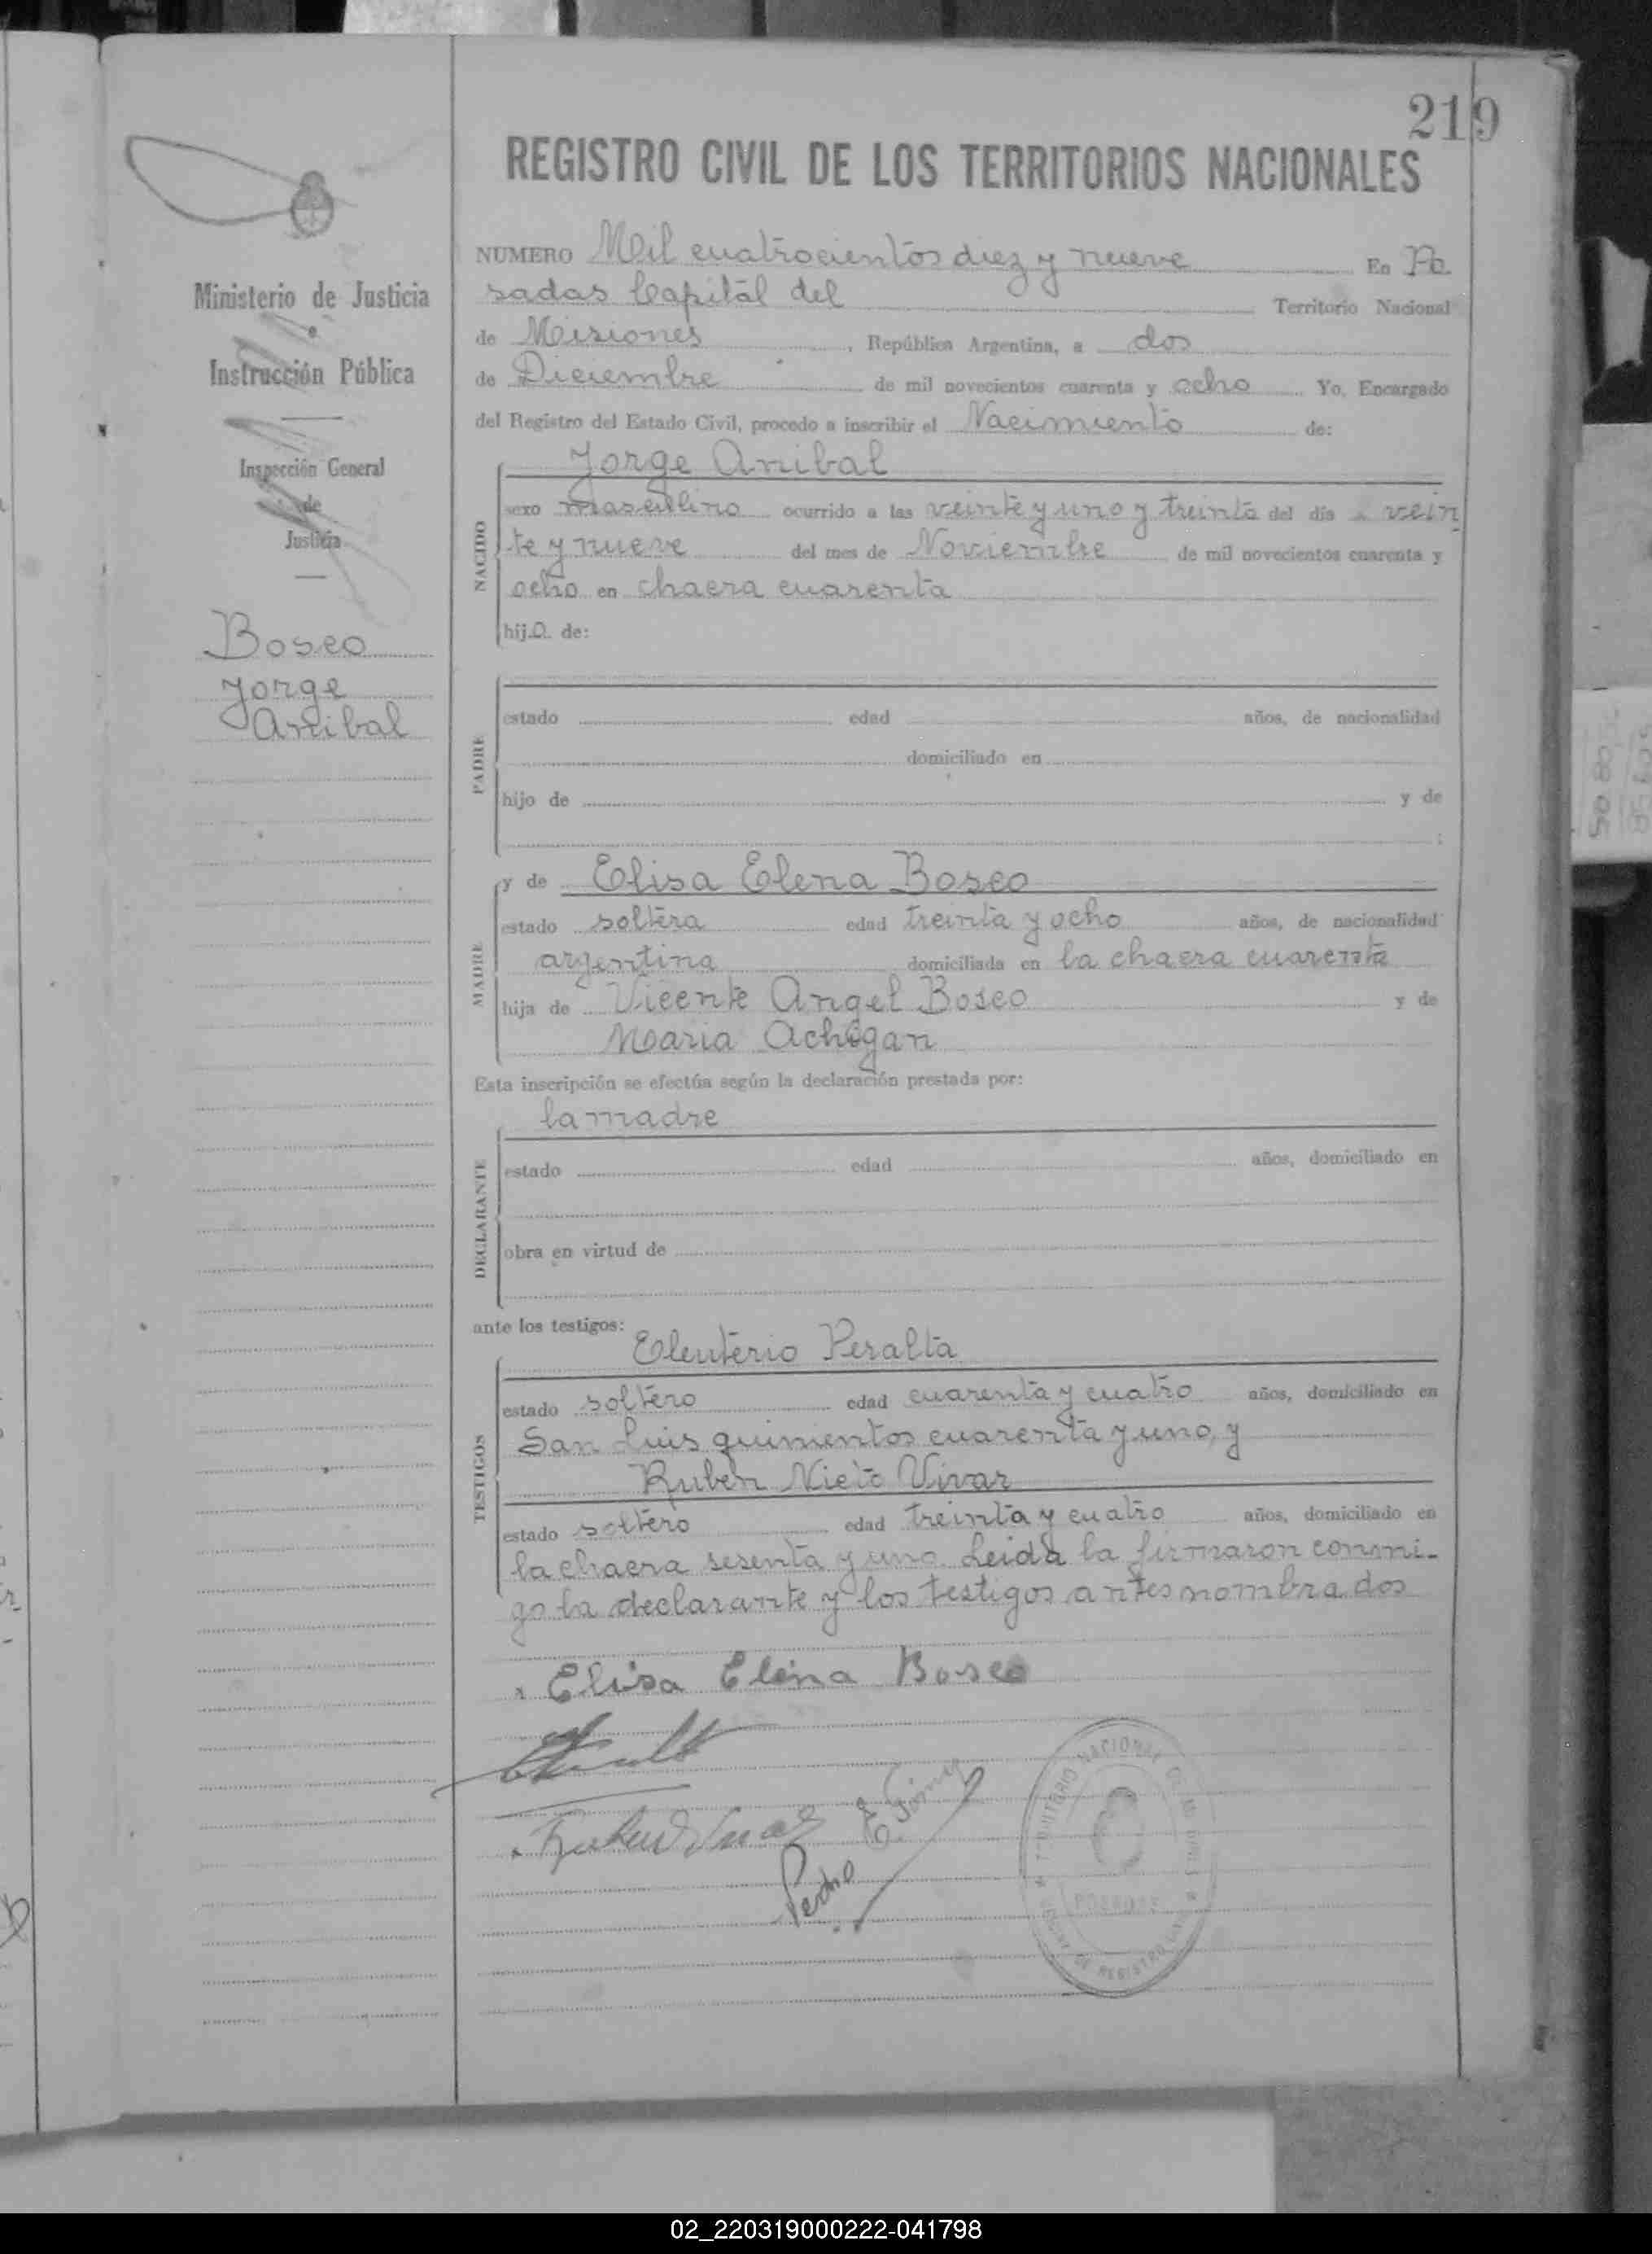 219
REGISTRO CIVIL DE LOS TERRITORIOS NACIONALES
Ministerio de Justicia
e
Instrucción Pública
Inspección General
de
Justicia
Bosco
Jorge
Anibal
NUMERO Mil cuatrocientos diez y nueve En Po.
sadas Capital del Territorio Nacional
de Misiones, República Argentina, a dos
de Diciembre de mil novecientos cuarenta y ocho Yo, Encargado
del Registro del Estado Civil, procedo a inscribir el Nacimiento de:
Jorge Anibal
NACIDO
sexo masculino ocurrido a las veinte y uno y treinta del día vein
te y nueve del mes de Noviembre de mil novecientos cuarenta y
ocho en chacra cuarenta
hijo de:
PADRE
estado edad años, de nacionalidad
domiciliado en
hijo de y de
;
y de Elisa Elena Bosco
MADRE
estado soltera edad treinta y ocho años, de nacionalidad
argentina domiciliada en la chacra cuarenta
hija de Vicente Angel Bosco y de
Maria Achogan
Esta inscripción se efectúa según la declaración prestada por:
la madre
DECLARANTE
estado edad años, domiciliado en
obra en virtud de
ante los testigos:
Eleuterio Peralta
TESTIGOS
estado soltero edad cuarenta y cuatro años, domiciliado en
San Luis quinientos cuarenta y uno, y
Ruben Nieto Vivar
estado soltero edad treinta y cuatro años, domiciliado en
la chacra sesenta y uno. Leida la firmaron conmi-
go la declarante y los testigos antes nombrados
Elisa Elena Bosco
Pedro E. Gómez
TERRITORIO NACIONAL DE MISIONES
POSADAS
DE REGISTRO
02_220319000222-041798